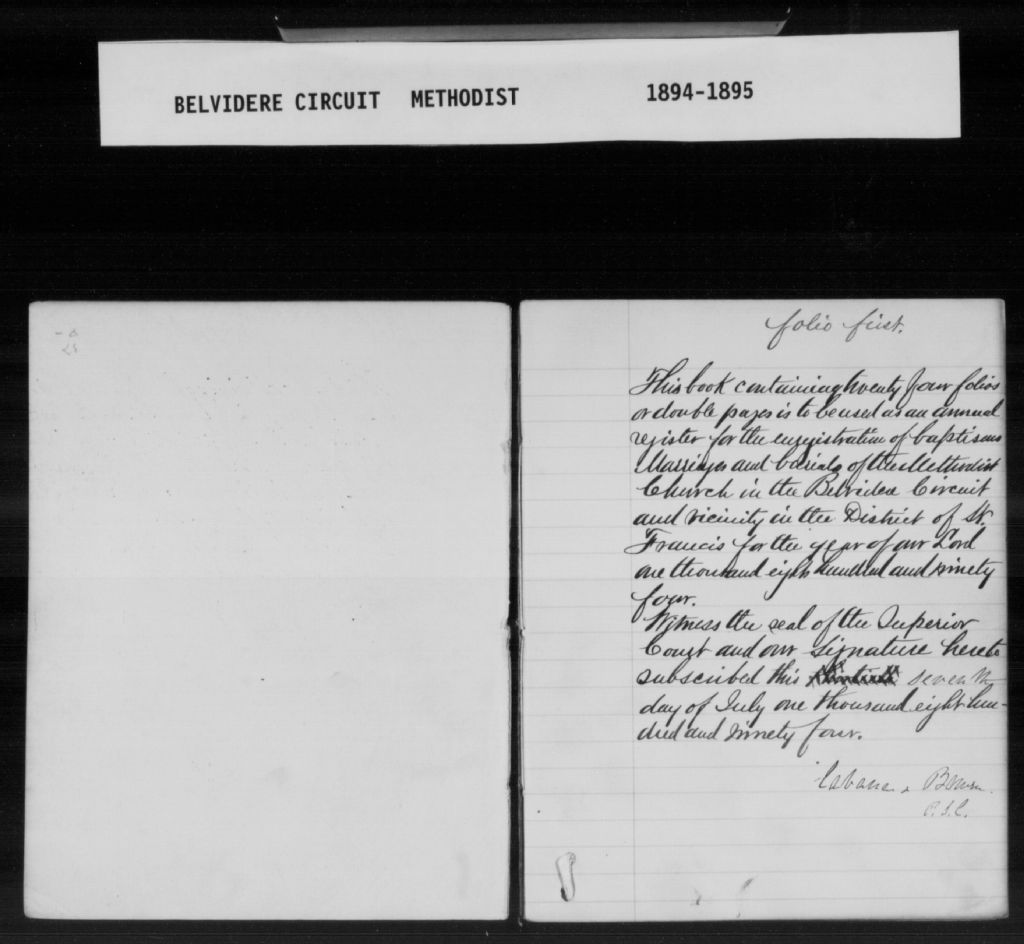 BELVIDERE CIRCUIT METHODIST 1894-1895
folio first.
This book containing twenty four folios
or double pages is to be used as an annual
register for the enregistration of baptisms
Marriages and burials of the Methodist
Church in the Belvidere Circuit
and vicinity in the District of St.
Francis for the year of our Lord
one thousand eight hundred and ninety
four.
Witness the seal of the Superior
Court and our signature hereto
subscribed this seventh
day of July one thousand eight hun-
dred and ninety four.
Cabana & Bowen.
P.S.C.